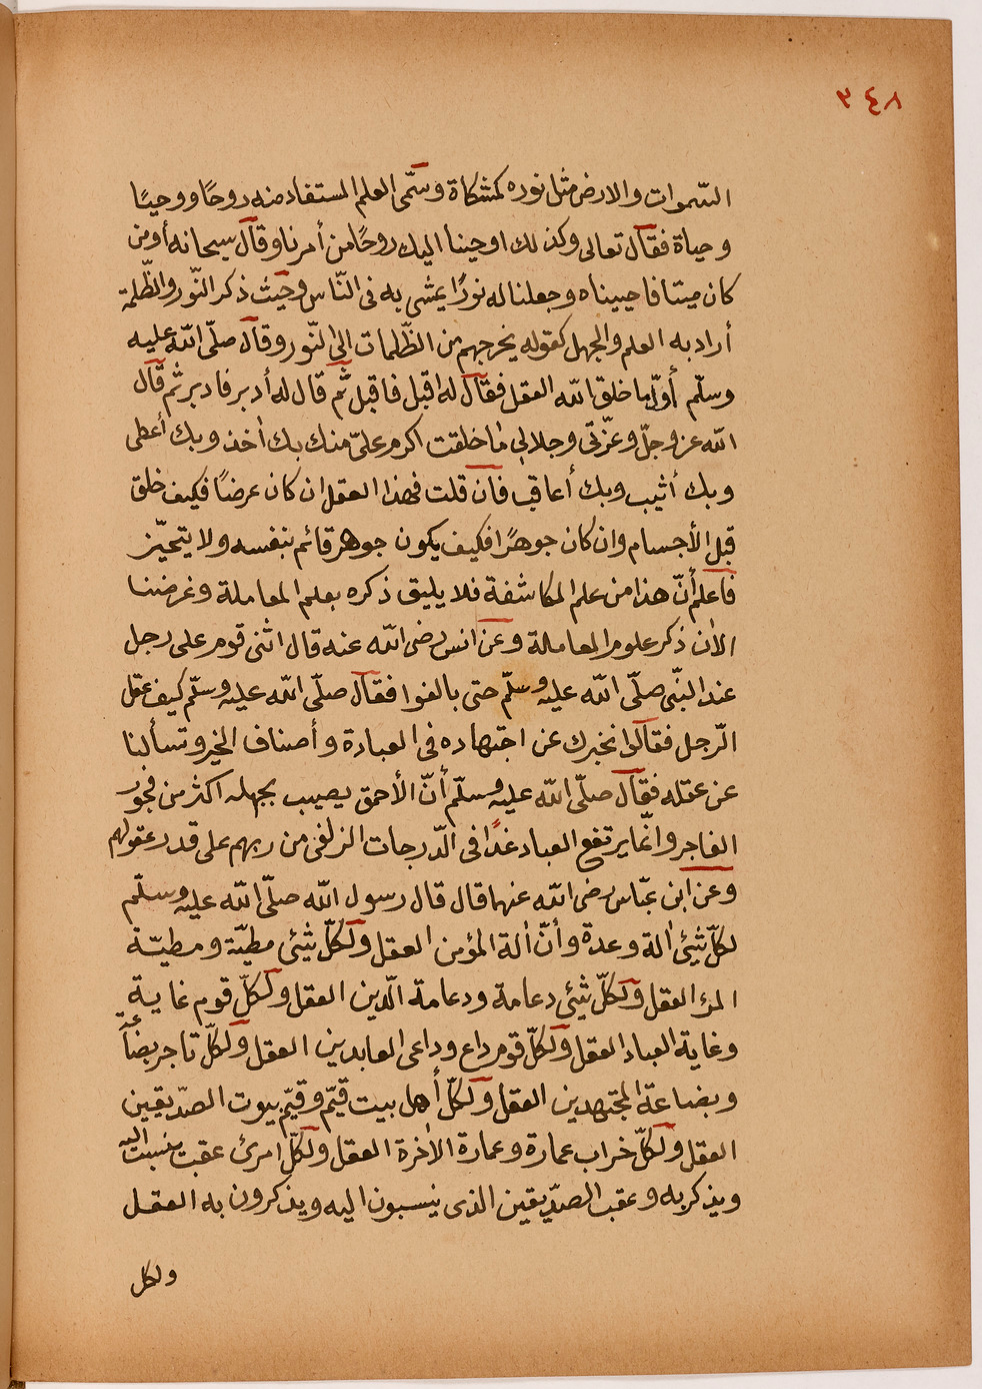 ٣٤٨
السّموات والارض مثل نوره كمشكاة وسمّى العلم المستفاد منه روحًا ووحيًا
وحياة فقال تعالى وكذلك اوحينا اليك روحًا من أمرنا وقال سبحانه أومن
كان ميتا فاحييناه وجعلنا له نورًا يمشى به فى النّاس وحيث ذكر النّور والظّلمة
أراد به العلم والجهل كقوله يخرجهم من الظّلمات الى النّور وقال صلّى اللّه عليه
وسلّم أوّل ما خلق اللّه العقل فقال له اقبل فاقبل ثم قال له أدبر فادبر ثم قال
اللّه عز وجلّ وعزّتى وجلالى ما خلقت اكرم علىّ منك بك أخذ وبك أعطى
وبك أثيب وبك أعاقب فان قلت فهذا العقل ان كان عرضًا فكيف خلق
قبل الأجسام وان كان جوهرًا فكيف يكون جوهر قائم بنفسه ولا يتحيّز
فاعلم أنّ هذا من علم المكاشفة فلا يليق ذكره بعلم المعاملة وغرضنا
الأن ذكر علوم المعاملة وعن انس رضى اللّه عنه قال اثنى قوم على رجل
عند النبّى صلّى اللّه عليه وسلّم حتى بالغوا فقال صلّى اللّه عليه وسلّم كيف عقل
الرّجل فقالوا نخبرك عن اجتهاده فى العبادة وأصناف الخير وتسألنا
عن عقله فقال صلّى اللّه عليه وسلّم أنّ الأحمق يصيب بجهله اكثر من فجور
الفاجر وانّما يرتفع العباد غدًا فى الدّرجات الزلفى من ربهم على قدر عقولهم
وعن ابن عبّاس رضى اللّه عنهما قال قال رسول اللّه صلّى اللّه عليه وسلّم
لكلّ شئى ألة وعدة وأنّ ألة المؤمن العقل ولكلّ شئى مطيّة ومطيّة
المرء العقل ولكلّ شئى دعامة ودعامة الدّين العقل ولكلّ قوم غاية
وغاية العباد العقل ولكلّ قوم داع وداعى العابدين العقل ولكلّ تاجر بضاعة
وبضاعة المجتهدين العقل ولكلّ أهل بيت قيّم وقيّم بيوت الصدّيقين
العقل ولكلّ خراب عمارة وعمارة الأخرة العقل ولكلّ امرئ عقب ينسب اليه
ويذكر به وعقب الصدّيقين الذى ينسبون اليه ويذكرون به العقل
ولكل